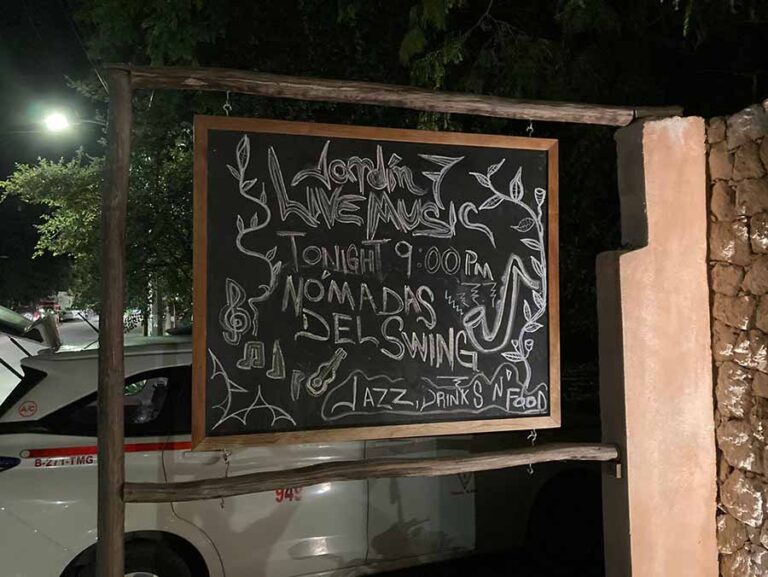 Jardín 7
LIVE MUSIC
TONIGHT 9:00 PM
NÓMADAS
DEL SWING
JAZZ, DRINKS N' FOOD
A/C
B-271-TMG
949